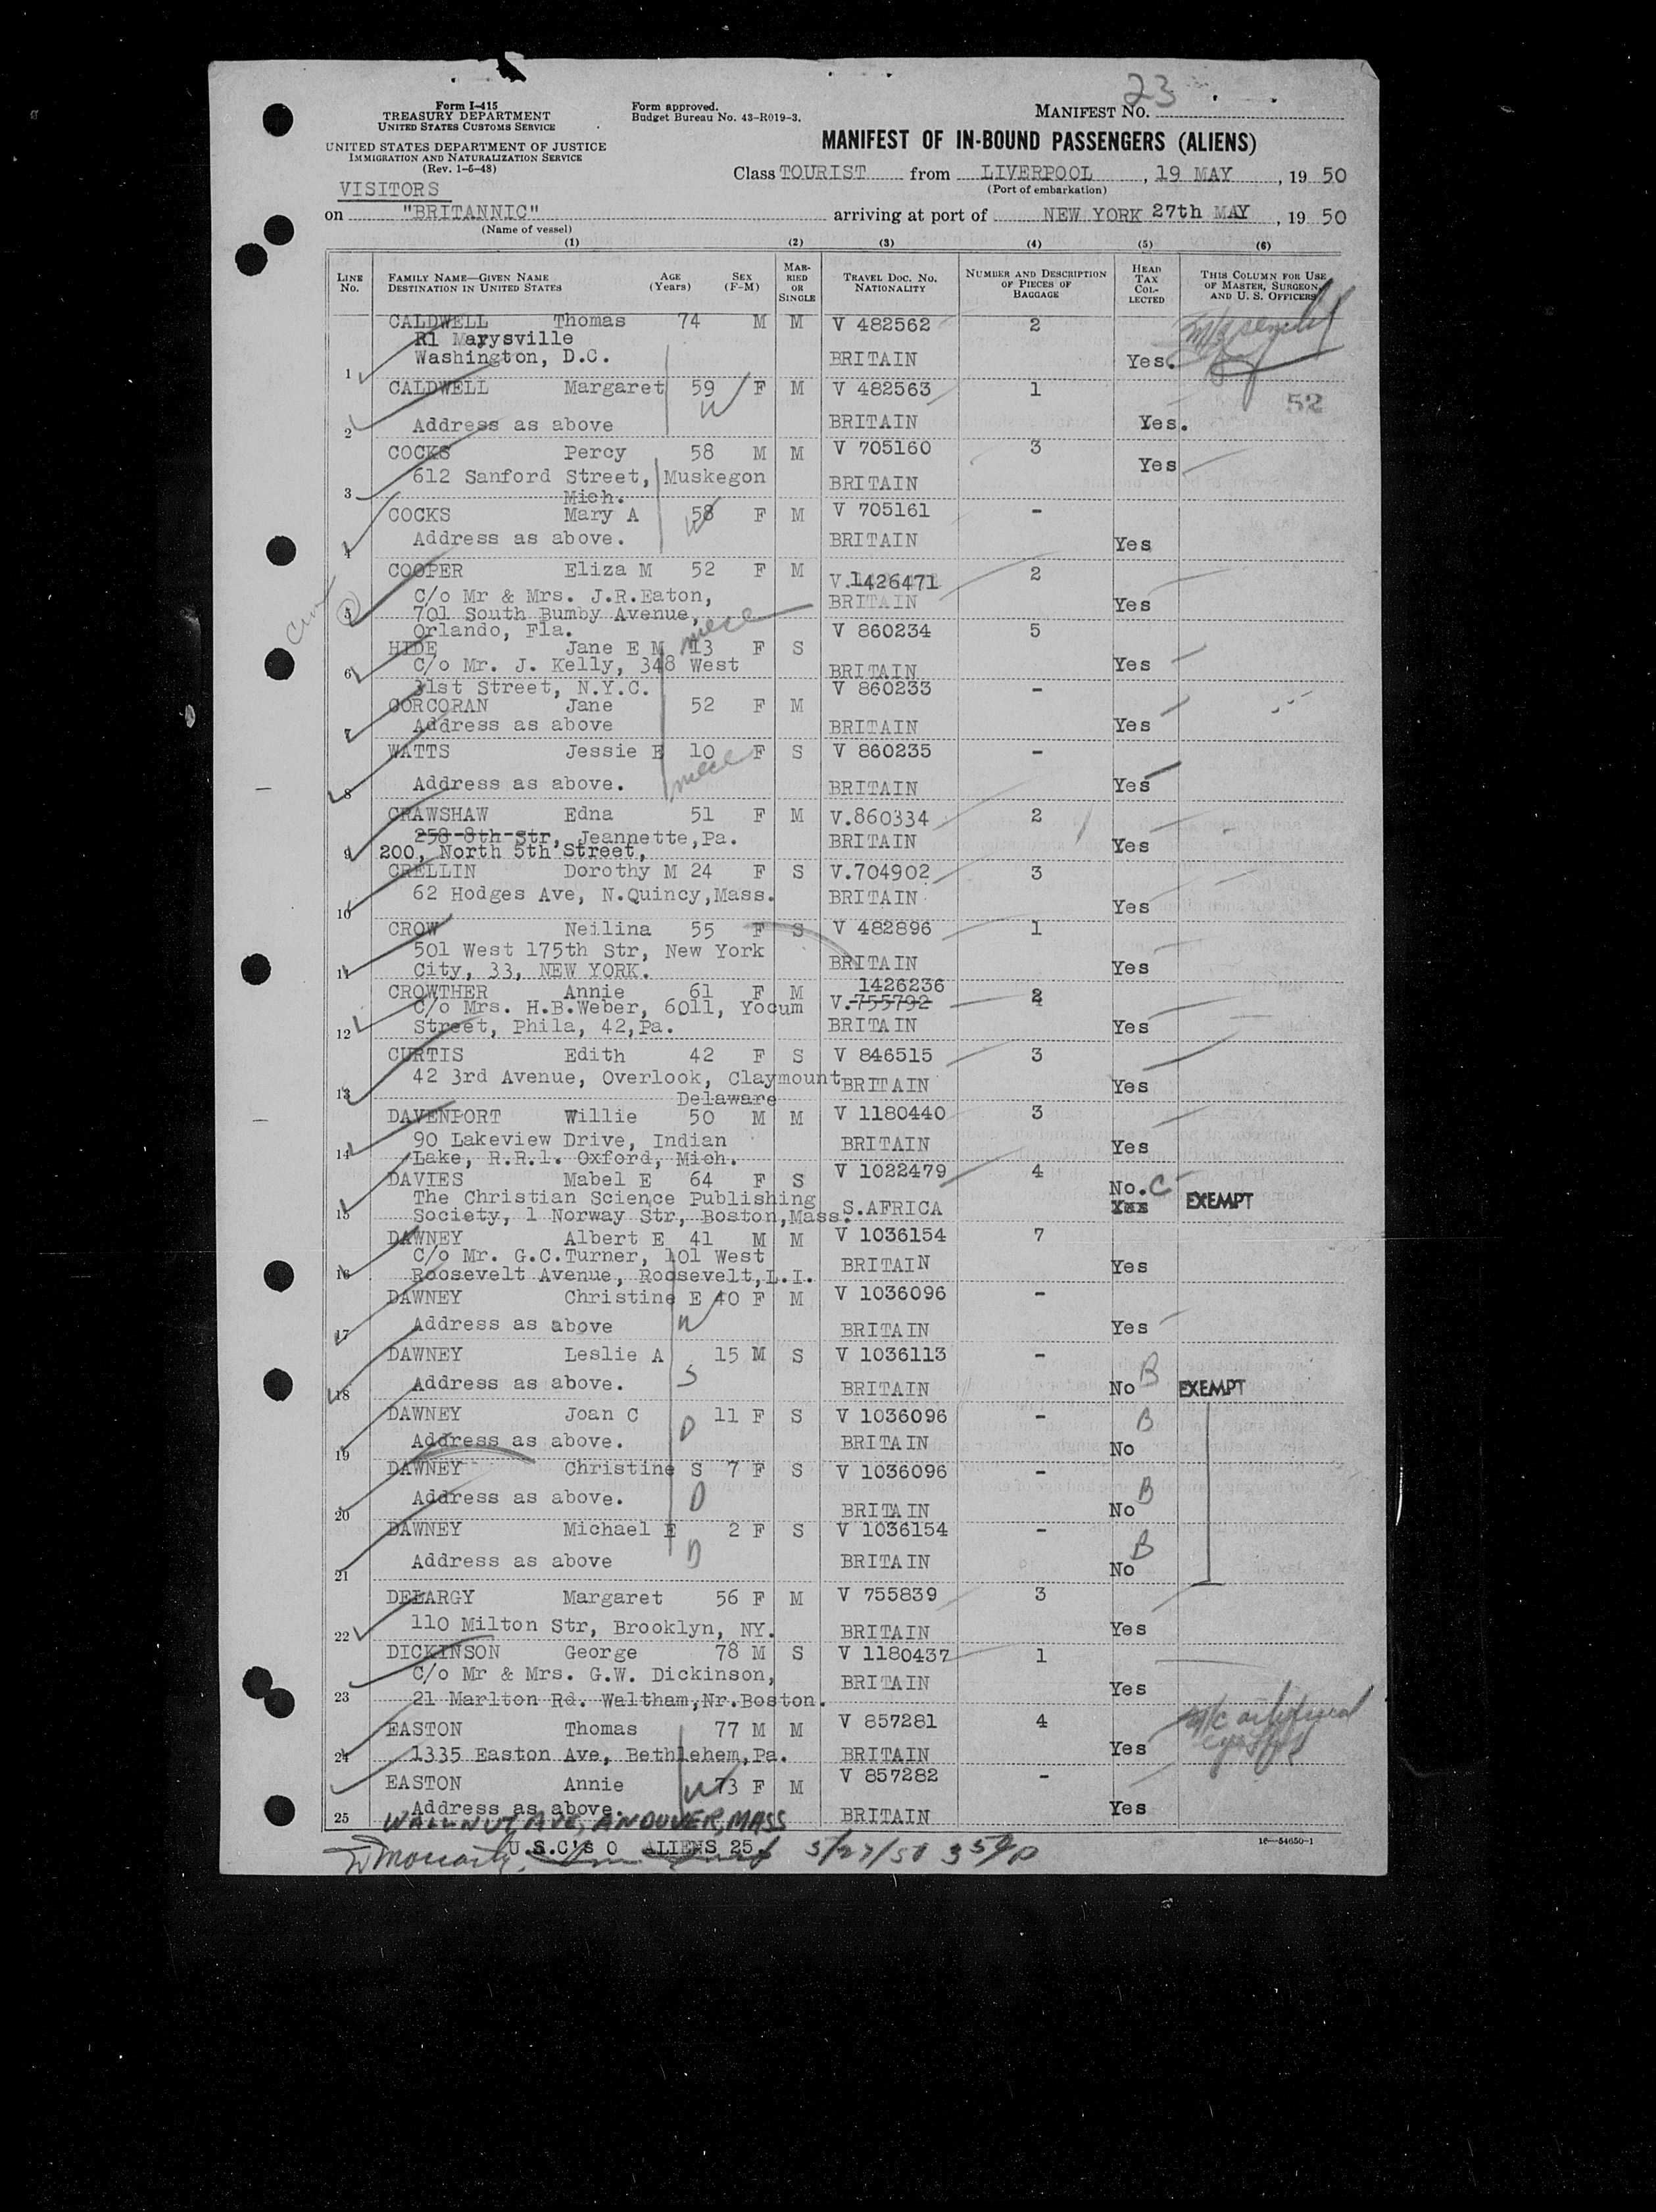 23
Form I-415
TREASURY DEPARTMENT
UNITED STATES CUSTOMS SERVICE
Form approved.
Budget Bureau No. 43-R019-3.
MANIFEST NO.
UNITED STATES DEPARTMENT OF JUSTICE
IMMIGRATION AND NATURALIZATION SERVICE
(Rev. 1-5-48)
MANIFEST OF IN-BOUND PASSENGERS (ALIENS)
Class TOURIST from LIVERPOOL, 19 MAY, 19 50
(Port of embarkation)
VISITORS
on "BRITANNIC" arriving at port of NEW YORK 27th MAY, 19 50
(Name of vessel)
(1) (2) (3) (4) (5) (6)
LINE No. FAMILY NAME—GIVEN NAME DESTINATION IN UNITED STATES AGE (Years) SEX (F-M) MARRIED OR SINGLE TRAVEL DOC. NO. NATIONALITY NUMBER AND DESCRIPTION OF PIECES OF BAGGAGE HEAD TAX COLLECTED THIS COLUMN FOR USE OF MASTER, SURGEON, AND U. S. OFFICERS
CALDWELL Thomas 74 M M V 482562 2
R1 Marysville
1 Washington, D.C. BRITAIN Yes.
CALDWELL Margaret 59 F M V 483563 1
52
2 Address as above BRITAIN Yes.
COCKS Percy 58 M M V 705160 3 Yes
3 612 Sanford Street, Muskegon BRITAIN
Mich.
COCKS Mary A 58 F M V 705161 -
4 Address as above. BRITAIN Yes
COOPER Eliza M 52 F M V.1426471 2
C/o Mr & Mrs. J.R.Eaton, BRITAIN
5 701 South Bumby Avenue, Yes
Orlando, Fla.
niece
HIDE Jane E M 13 F S V 860234 5
6 C/o Mr. J. Kelly, 348 West BRITAIN Yes
31st Street, N.Y.C.
CORCORAN Jane 52 F M V 860233 -
7 Address as above BRITAIN Yes
WATTS Jessie E 10 F S V 860235 -
niece
8 Address as above. BRITAIN Yes
CRAWSHAW Edna 51 F M V.860334 2
258 8th Str, Jeannette,Pa. BRITAIN
9 200, North 5th Street, Yes
CRELLIN Dorothy M 24 F S V.704902 3
10 62 Hodges Ave, N.Quincy,Mass. BRITAIN Yes
CROW Neilina 55 F S V 482896 1
501 West 175th Str, New York BRITAIN
11 City, 33, NEW YORK. Yes
1426236
CROWTHER Annie 61 F M V.755792 2
C/o Mrs. H.B.Weber, 6011, Yocum
12 Street, Phila, 42,Pa. BRITAIN Yes
CURTIS Edith 42 F S V 846515 3
13 42 3rd Avenue, Overlook, Claymount BRITAIN Yes
Delaware
DAVENPORT Willie 50 M M V 1180440 3
90 Lakeview Drive, Indian BRITAIN
14 Lake, R.R.1. Oxford, Mich. Yes
DAVIES Mabel E 64 F S V 1022479 4
The Christian Science Publishing No. C
15 Society, 1 Norway Str, Boston,Mass. S.AFRICA Yes EXEMPT
DAWNEY Albert E 41 M M V 1036154 7
C/o Mr. G.C.Turner, 101 West BRITAIN
16 Roosevelt Avenue, Roosevelt,L.I. Yes
DAWNEY Christine E 40 F M V 1036096 -
W
17 Address as above BRITAIN Yes
DAWNEY Leslie A 15 M S V 1036113 -
18 Address as above. S BRITAIN No B EXEMPT
DAWNEY Joan C 11 F S V 1036096 -
19 Address as above. D BRITAIN No B
DAWNEY Christine S 7 F S V 1036096 -
20 Address as above. D BRITAIN No B
DAWNEY Michael E 2 F S V 1036154 -
21 Address as above D BRITAIN No B
DELARGY Margaret 56 F M V 755839 3
22 110 Milton Str, Brooklyn, NY. BRITAIN Yes
DICKINSON George 78 M S V 1180437 1
C/o Mr & Mrs. G.W. Dickinson, BRITAIN
23 21 Marlton Rd. Waltham,Nr.Boston. Yes
EASTON Thomas 77 M M V 857281 4
24 1335 Easton Ave, Bethlehem,Pa. BRITAIN Yes
EASTON Annie 73 F M V 857282 -
W
Address as above.
25 WALNUT AVE, ANDOVER, MASS BRITAIN Yes
U.S.C's 0 ALIENS 25. 5/27/50
16—54650-1